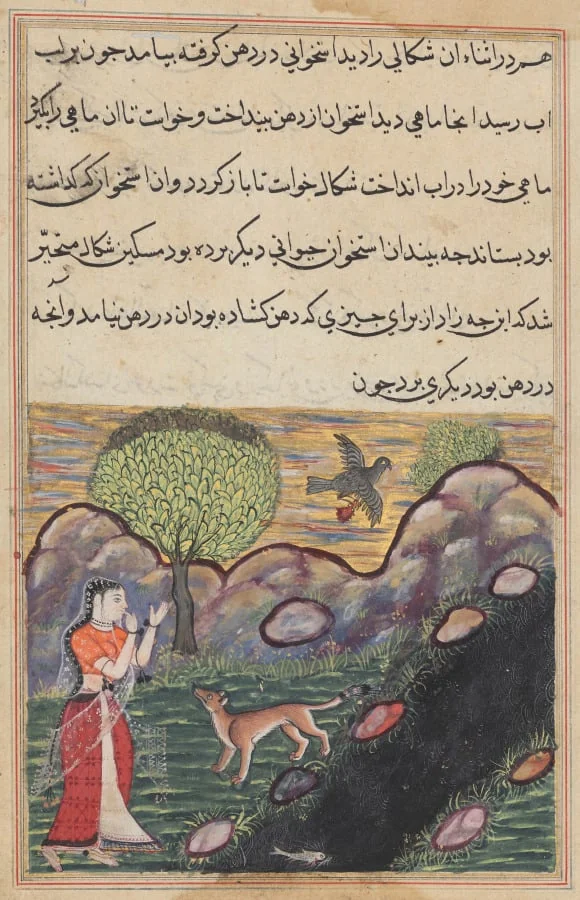 هم در اثناء ان شكالي را ديد استخواني در دهن كرفته بيامد جون بر لب
اب رسيد انجا ماهي ديد استخوان از دهن بينداخت و خواست تا ان ماهي را بكيرد
ماهي خود را در اب انداخت شكال خواست تا باز كردد و ان استخوان كه كذاشته
بود بستاند جه بيند ان استخوان حيواني ديكر برده بود مسكين شكال متحيّر
شد كه اين جه زاد از براي جيزي كه دهن كشاده بود ان در دهن نيامد و انجه
در دهن بود ديكري برد جون